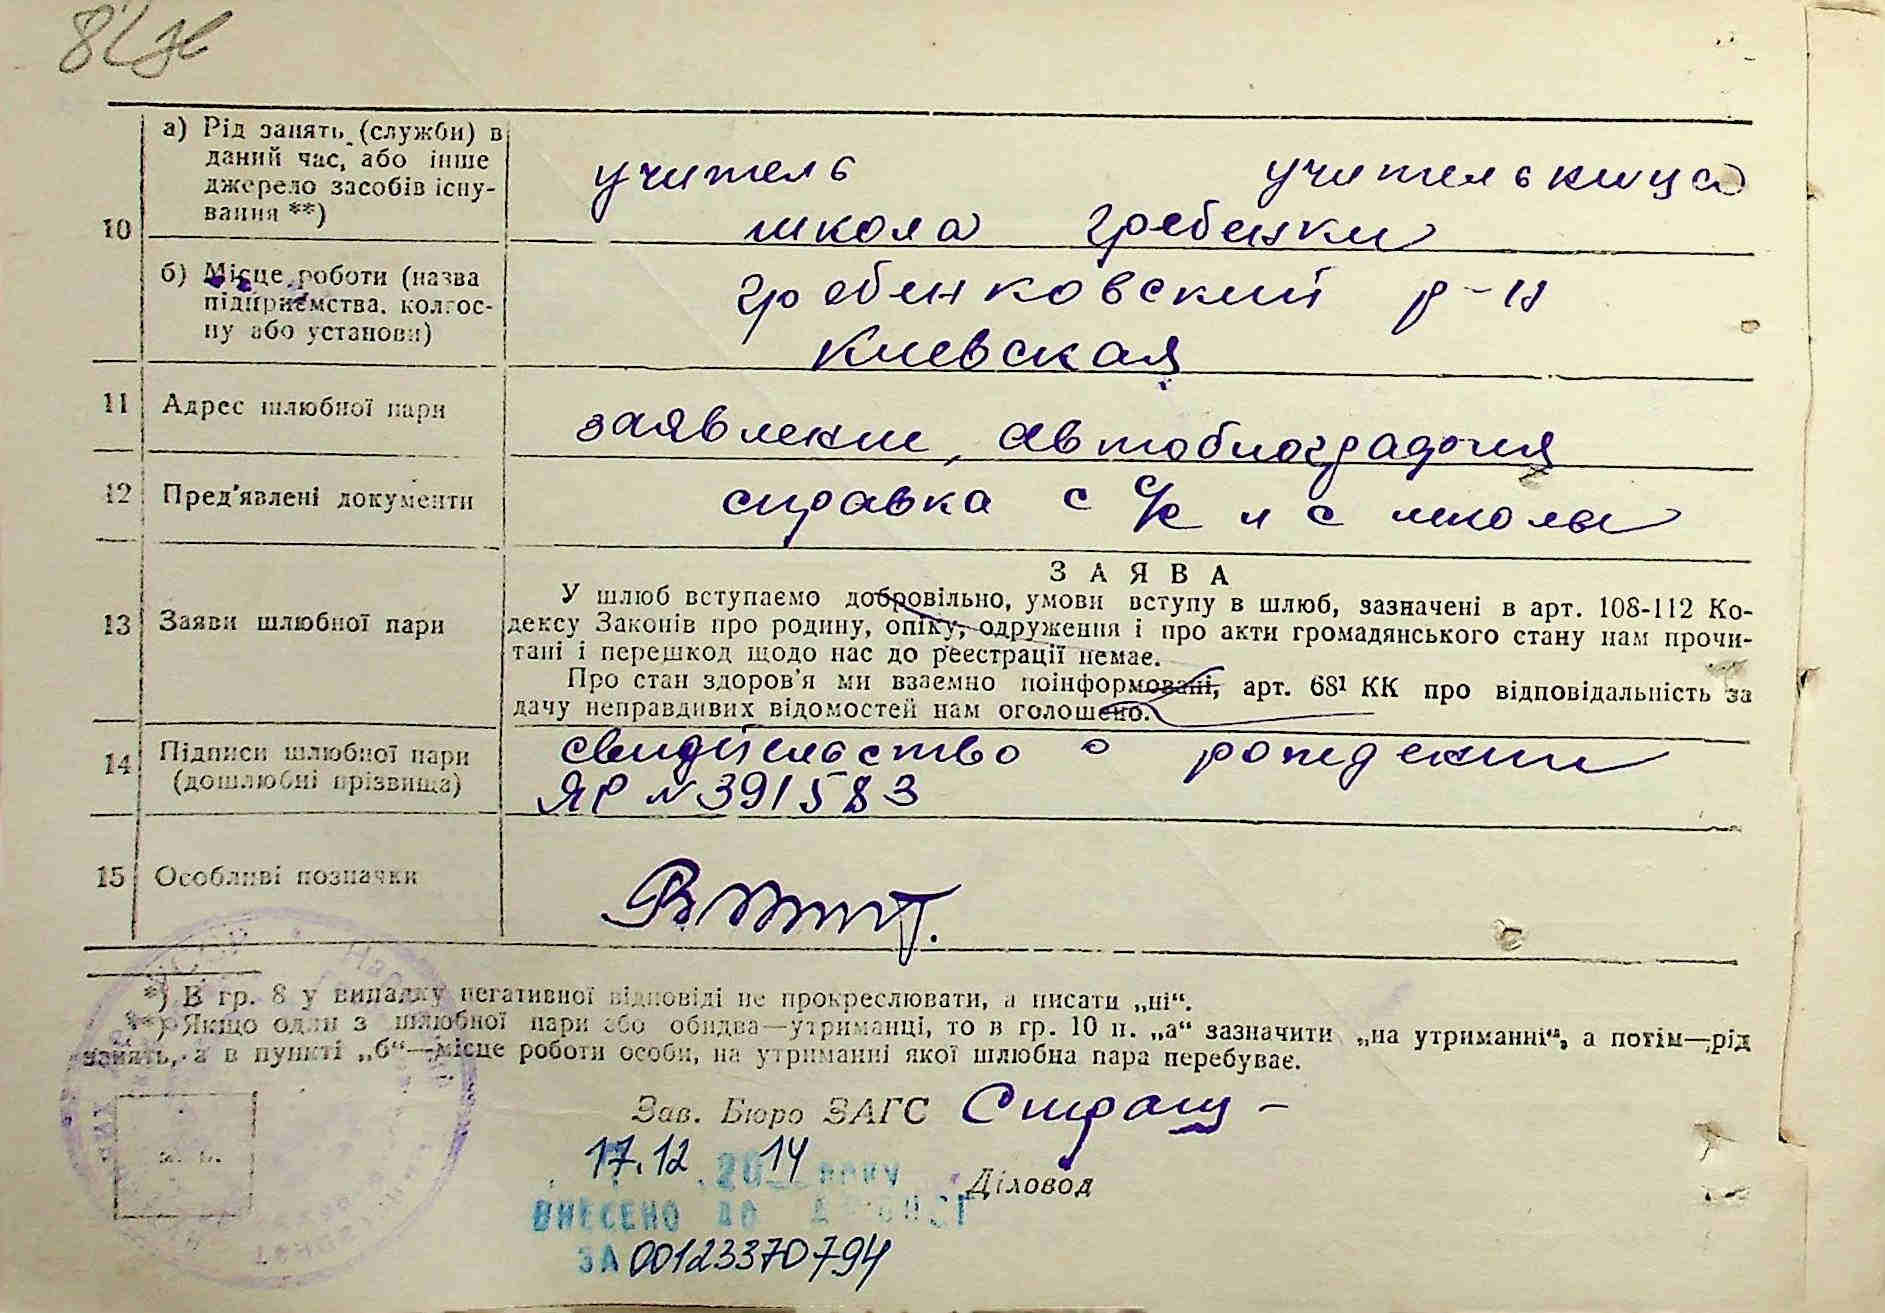 10
а) Рід занять (служби) в
даний час, або інше
джерело засобів існу-
вання **)
учитель учительница
школа Гребенки
б) Місце роботи (назва
підприємства, колгос-
пу або установи)
Гребенковский р-н
Киевская
11 Адрес шлюбної пари
заявление, автобиография
12 Пред'явлені документи
справка с с/с и с школы
13 Заяви шлюбної пари
ЗАЯВА
У шлюб вступаємо добровільно, умови вступу в шлюб, зазначені в арт. 108-112 Ко-
дексу Законів про родину, опіку, одруження і про акти громадянського стану нам прочи-
тані і перешкод щодо нас до реестрації немає.
Про стан здоров'я ми взаємно поінформовані, арт. 68¹ КК про відповідальність за
дачу неправдивих відомостей нам оголошено.
14 Підписи шлюбної пари
(дошлюбні прізвища)
свидетельство о рождении
ЯР N 391583
15 Особливі позначки
*) В гр. 8 у випадку негативної відповіді не прокреслювати, а писати „ні“.
**) Якщо один з шлюбної пари або обидва—утриманці, то в гр. 10 п. „а“ зазначити „на утриманні“, а потім—рід
занять, а в пункті „б“—місце роботи особи, на утриманні якої шлюбна пара перебуває.
Зав. Бюро ЗАГС
17.12.2014 РОКУ
Діловод
ВНЕСЕНО ДО
ЗА 00123370794